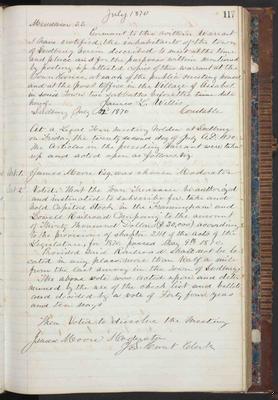 July 1870
117
Middlesex SS.
Pursuant to the within Warrant
I have notified the inhabitants of the town
of Sudbury herein described to meet at the time
and place and for the purposes within mentioned
by posting up attested copies of this warrant at the
Town House, at each of the public meeting houses
and at the post offices in the Village of Assabet
in said Town ten days before the time
James L. Willis
Sudbury July 1870 Constable
At a Legal Town Meeting Holden at Sudbury
on Friday the twenty second day of July A.D. 1870
the Articles in the preceding Warrant were taken
up and acted upon as follows viz.
Art. 1 James Moore Esq. was chosen Moderator
Art. 2 Voted: That the Town Treasurer be authorized
and instructed to subscribe for, take and
hold Capital Stock in the Framingham and
Lowell Railroad Company to the amount
of Thirty Thousand Dollars ($30,000) according
to the provisions of chapter 211 of the acts of the
Legislature for 1870 passed May 9th 1870.
Provided Said Railroad shall not be lo-
cated in any place more than Half a mile
from the last survey in the town of Sudbury
The above vote was acted upon and deter-
mined by the use of the check list and ballot
and decided by a vote of Forty four yeas
and ten nays
Then Voted to dissolve the Meeting
James Moore Moderator
J.S. Hunt Clerk